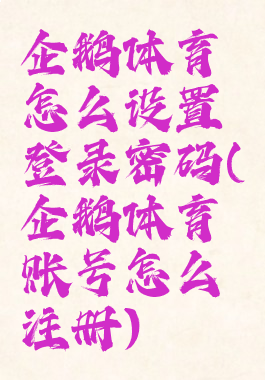 企鹅体育
怎么设置
登录密码(
企鹅体育
账号怎么
注册)